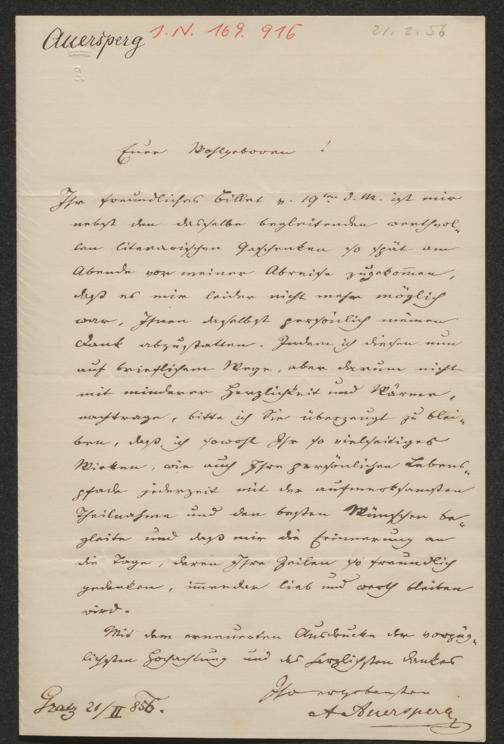 Auersperg I.N. 169.916 21.2.56
Euer Wohlgeboren!
Ihr freundliches Billet v. 19ten d. M. ist mir
nebst den dasselbe begleitenden werthvol-
len literarischen Geschenken so spät am
Abende vor meiner Abreise zugekommen,
daß es mir leider nicht mehr möglich
war, Ihnen daselbst persönlich meinen
Dank abzustatten. Indem ich diesen nun
auf brieflichem Wege, aber darum nicht
mit minderer Herzlichkeit und Wärme,
nachtrage, bitte ich Sie überzeugt zu blei-
ben, daß ich sowohl Ihr so vielseitiges
Wirken, wie auch Ihre persönlichen Lebens-
pfade jederzeit mit der aufmerksamsten
Theilnahme und den besten Wünschen be-
gleite und daß mir die Erinnerung an
die Tage, deren Ihre Zeilen so freundlich
gedenken, immerdar lieb und werth bleiben
wird.
Mit dem erneuerten Ausdrucke der vorzüg-
lichsten Hochachtung und des herzlichsten Dankes
Ihr ergebenster
Gratz 21/II 856. A Auersperg